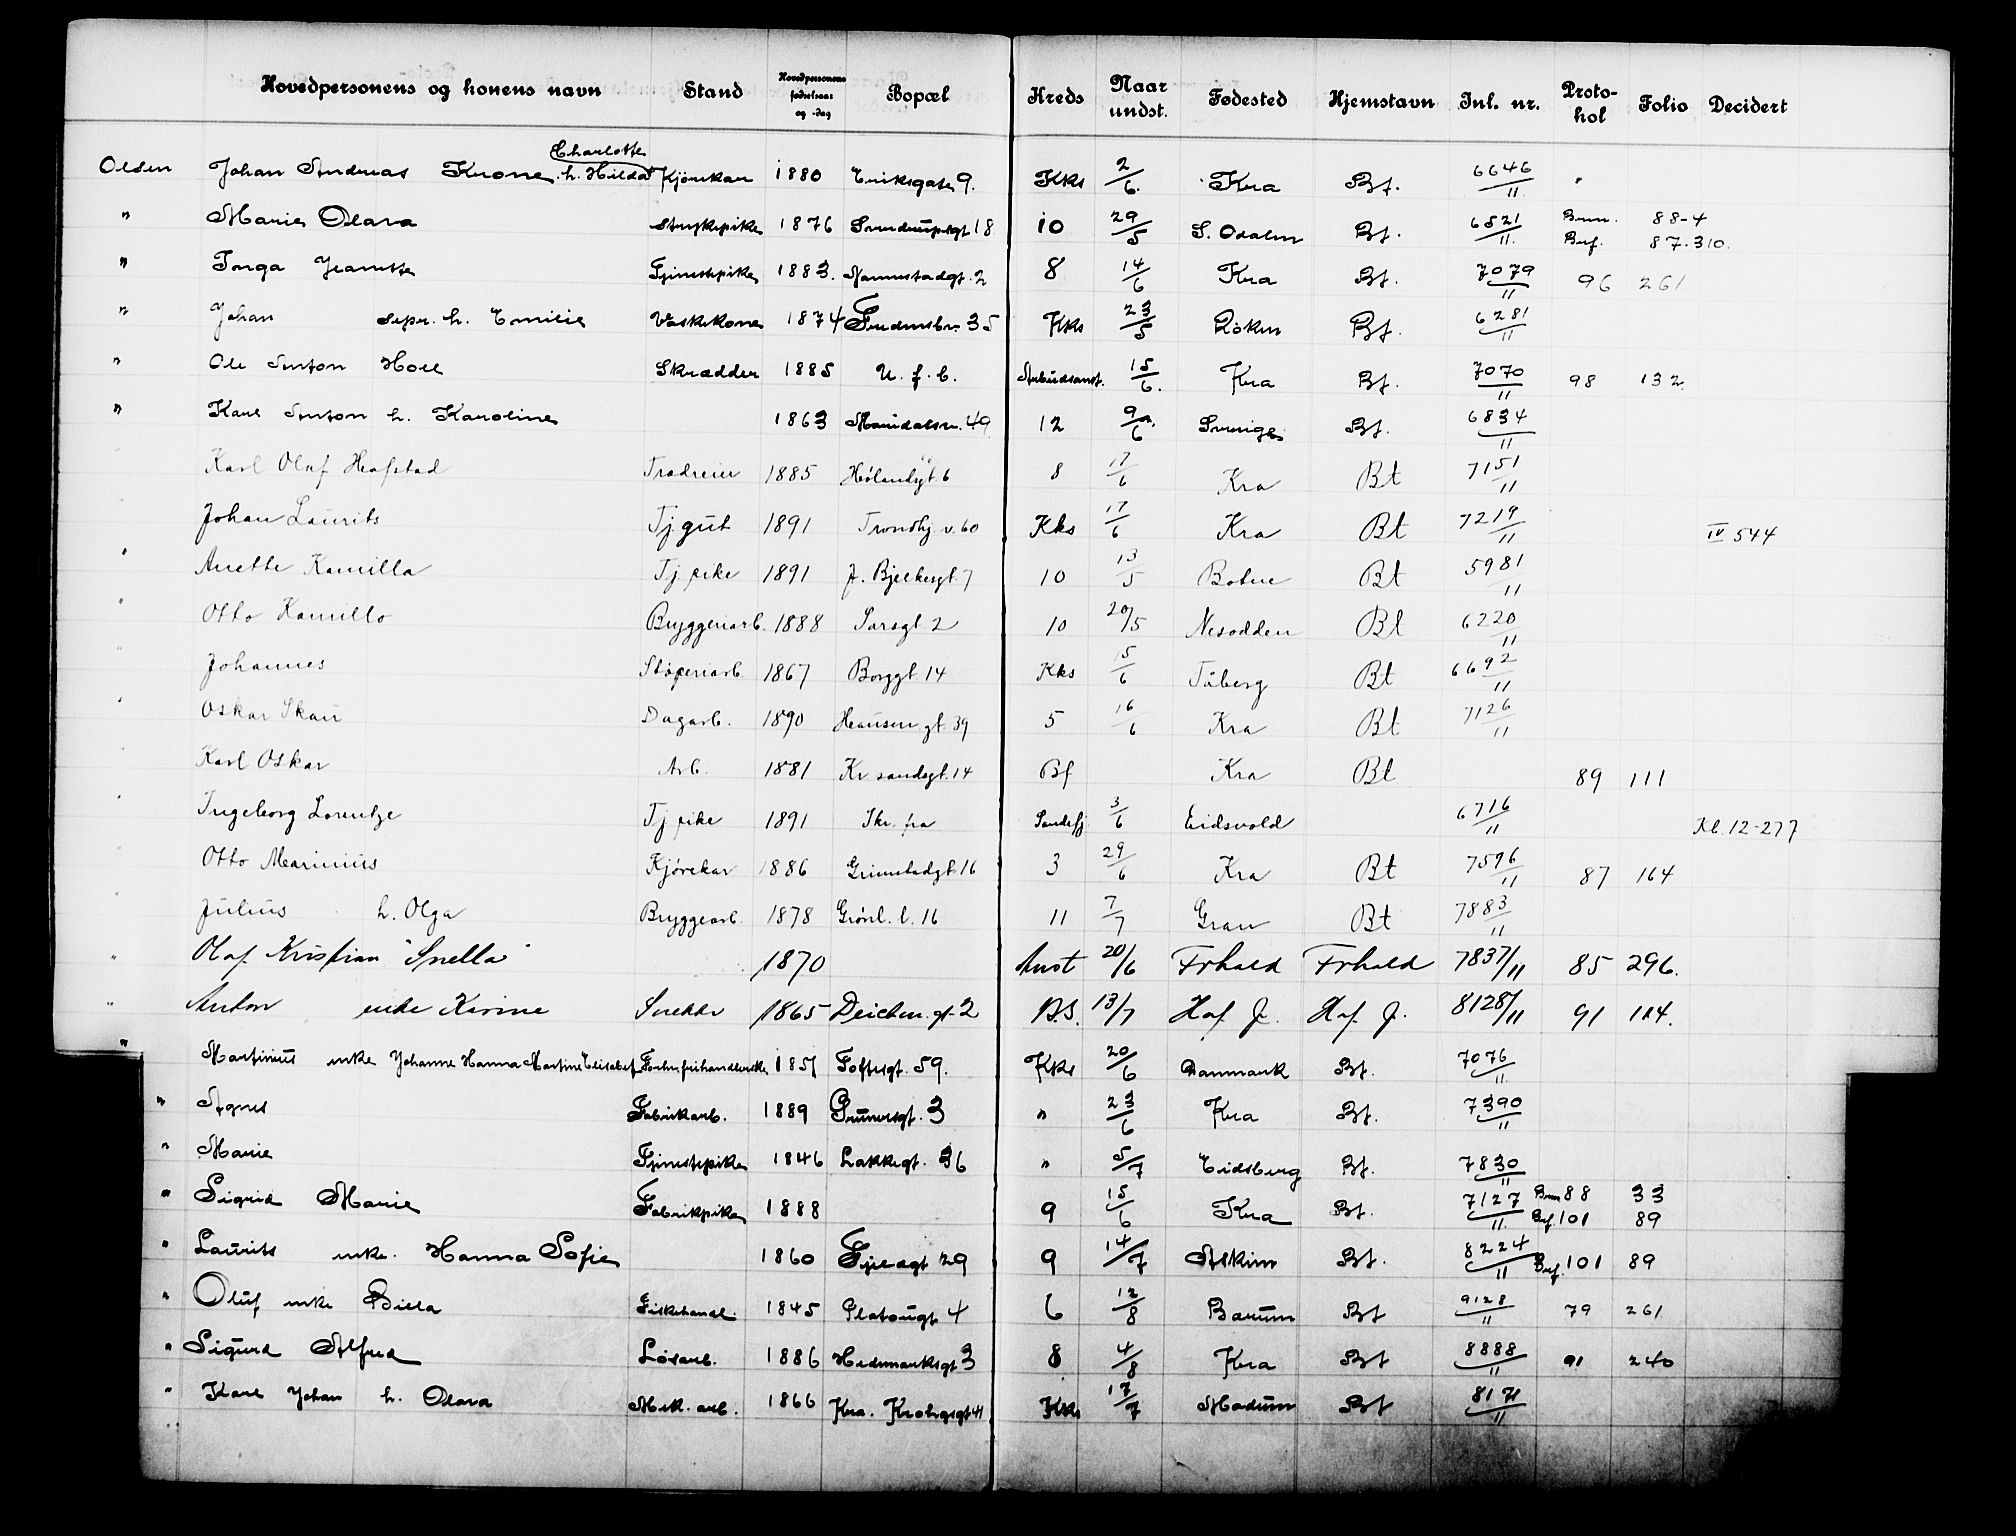 Hovedpersonens og konens navn Stand Hovedpersonens fødselsaar og -dag Bopæl Kreds Naar undst. Fødested Hjemstavn Inl. nr. Proto-kol Folio Decidert
Charlotte
Olsen Johan Andreas Krone h. Hilda Kjørekar 1880 Eriksgate 9. Kks 2/6. Kra Bt. 6646/11 "
" Marie Olava Strykepike 1876 Sverdrupsgt 18 10 29/5 S. Odalen Bt. 6521/11. Brun. 88-4
Bef. 87-310.
" Inga Jeanette Tjenestepike 1883. Nannestadgt. 2 8 14/6 Kra Bt. 7079/11 96 261
" Johan sepr. h. Emilie Vaskekone 1874 Fredensbr. 35 Kks 23/5 Røken Bt. 6281/11
" Ole Anton Holl Skrædder 1885 U. f. b. Arbeidsanst. 15/6. Kra Bt. 7070/11 98 132.
" Karl Anton h. Karoline 1863 Maridalsv. 49 12 9/6 Sverige Bt. 6834/11
" Karl Olaf Hafstad Trædreier 1885 Hølandsgt. 6 8 17/6 Kra Bt 7151/11
" Johan Laurits Tj. gut 1891 Trondhj. v. 60 Kks 17/6 Kra Bt 7219/11 IV 544
" Anette Kamilla Tj. pike 1891 J. Bjelkesgt. 7 10 13/5 Botne Bt 5981/11
" Otto Kamillo Bryggeriarb. 1888 Sarsgt 2 10 20/5 Nesodden Bt 6220/11
" Johannes Støperiarb 1867 Borggt 14 Kks 15/6 Fåberg Bt 6692/11
" Oskar Skau Dagarb. 1890 Heimdalsgt 39 5 16/6 Kra Bt 7126/11
" Karl Oskar Arb. 1881 Kr. sandsgt. 14 Bf Kra Bt 89 111
" Ingeborg Lorentze Tj. pike 1891 Skr. fra Sandefj 3/6 Eidsvold 6716/11 Kl. 12-277
" Otto Marinius Kjørekar 1886 Grimstadgt 16 3 29/6 Kra Bt 7596/11 87 164
" Julius h. Olga Bryggearb. 1878 Grønl. l. 16 11 7/7 Gran Bt 7883/11
" Olaf Kristian "Snella" 1870 Anst 20/6 Frhald Frhald 7837/11 85 296.
" Anton enke Karine Snekker 1865 Deichm. gt. 2 B.S. 13/7 Høl. J. Høl. J. 8128/11 91 114.
" Martinius enke Johanne Hanna Martine Elisabet 1851 Toftesgt. 59. Kks 20/6 Danmark Bt. 7076/11.
" Agnes Fabrikarb. 1889 Grünersgt. 3 " 23/6 Kra Bt. 7390/11
" Marie Tjenestepike 1846 Lakkegt. 36 " 5/7 Eidsberg Bt. 7830/11
" Sigrid Marie Fabrikpike 1888 9 15/6 Kra Bt. 7127/11 Brun 88 33
Bef. 101 89
" Laurits enke. Hanna Sofie 1860 Fjeldgt 29 9 14/7 Askim Bt. 8224/11 Bef. 101 89
" Oluf enke Silla Fiskehandl. 1845 Platougt 4 6 12/8 Bærum Bt 9128/11 79 261
" Sigurd Alfred Løsarb. 1886 Hedemarksgt 3 8 4/8 Kra Bt 8888/11 91 240
" Karl Johan h. Olava Mek. arb. 1866 Kra. Krohgsgt 41 Kks 17/7 Modum Bt 8171/11